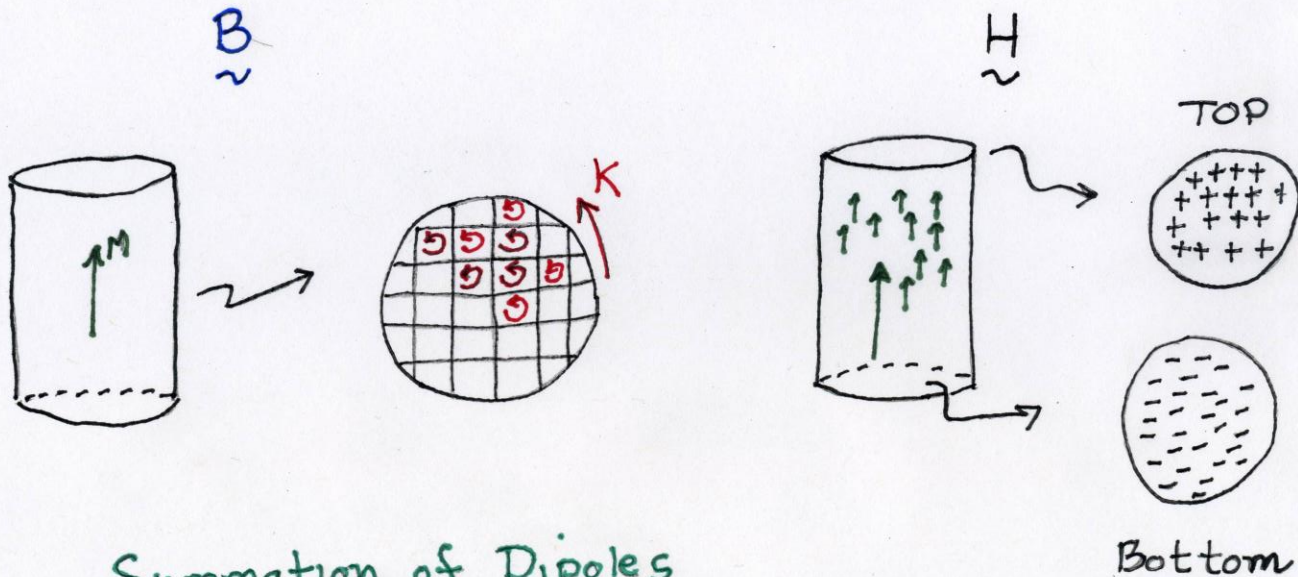 B
~
H
~
M
K
TOP
+ + + + + + + + + + + + + + + + + +
Bottom
Summation of Dipoles